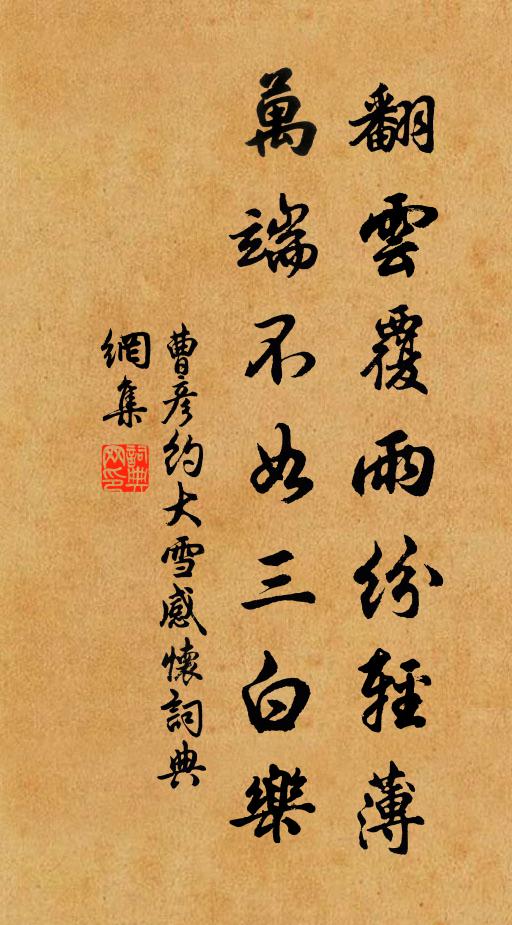 翻雲覆雨紛輕薄
萬端不如三白樂
曹彦約大雪感懷詞典
網集
詞典網印